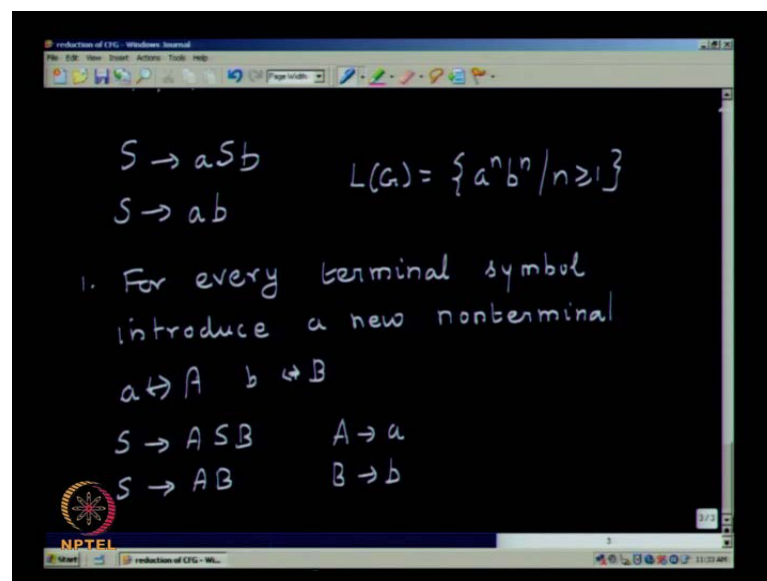 reduction of CFG - Windows Journal
File Edit View Insert Actions Tools Help
Page Width
S → aSb
L(G) = { aⁿbⁿ / n ≥ 1 }
S → ab
1. For every terminal symbol
introduce a new nonterminal
a ↔ A b ↔ B
S → ASB A → a
S → AB B → b
3/3
NPTEL
3
Start reduction of CFG - Wi... 11:33 AM